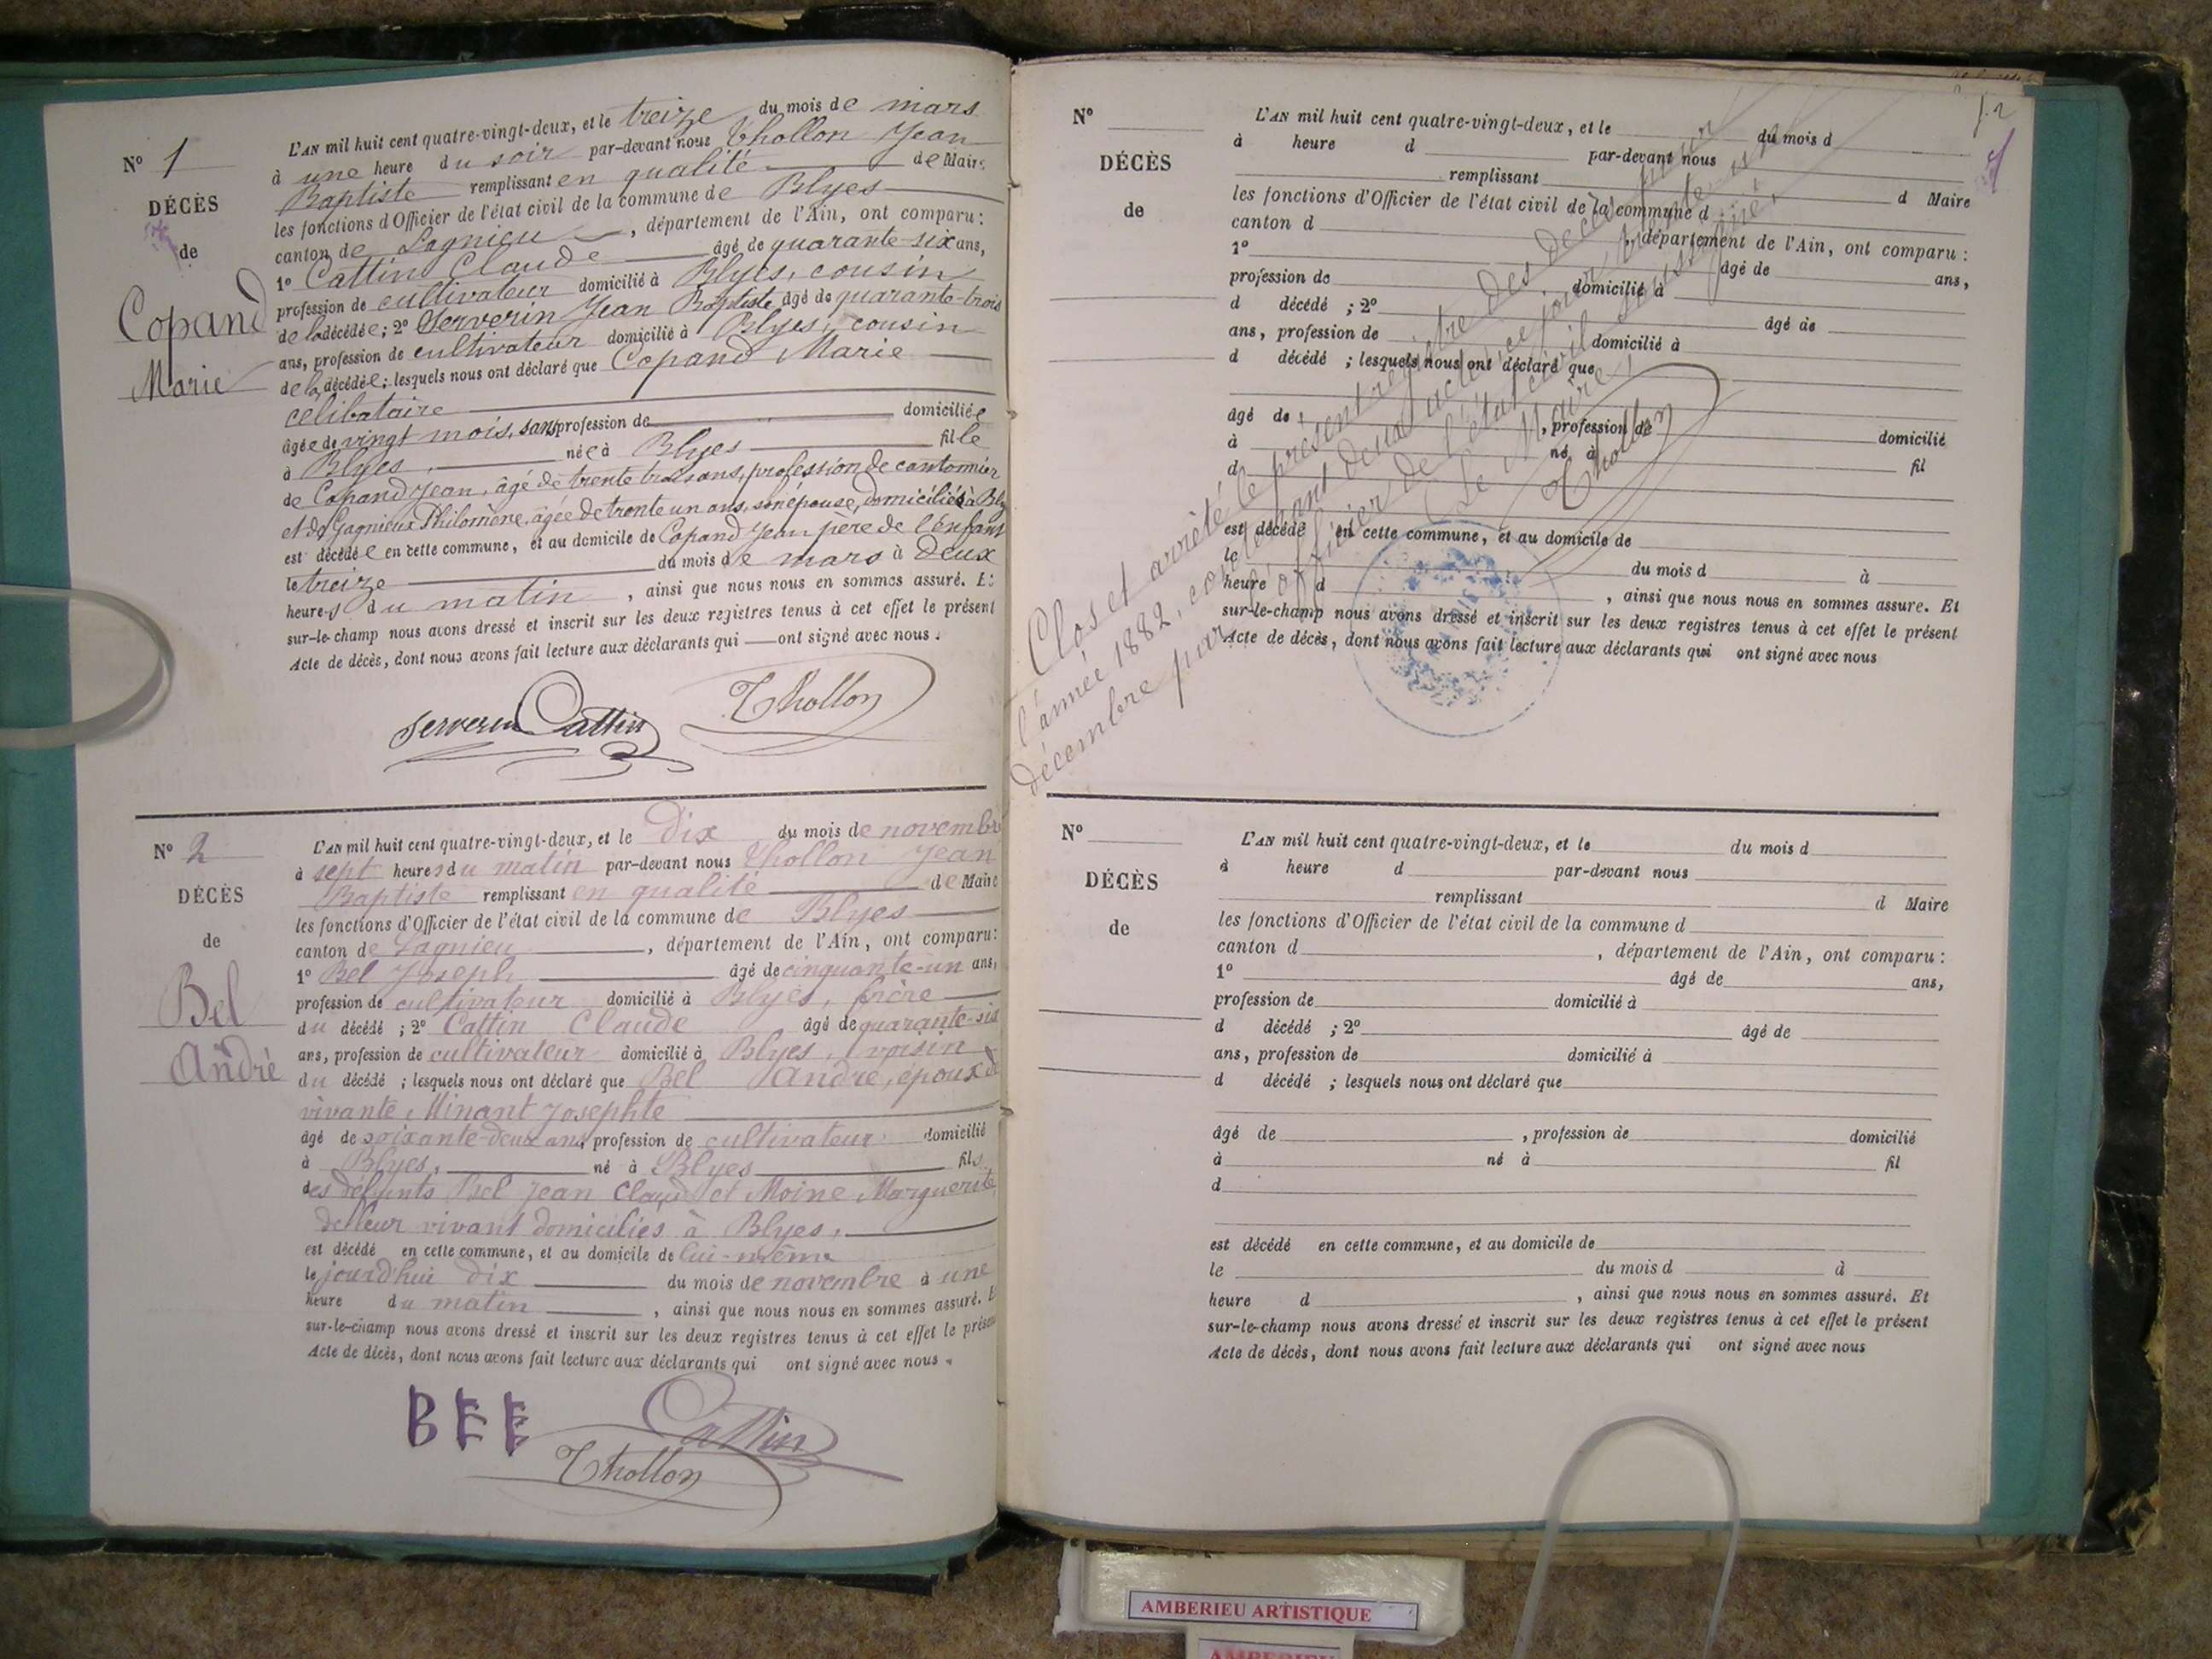 N° 1
DÉCÈS
de
Copand
Marie
L'AN mil huit cent quatre-vingt-deux, et le treize du mois de mars
à une heure du soir par-devant nous Chollon Jean
Baptiste remplissant en qualité de Maire
les fonctions d'Officier de l'état civil de la commune de Blyes
canton de Lagnieu, département de l'Ain, ont comparu :
1° Cattin Claude âgé de quarante-six ans,
profession de cultivateur domicilié à Blyes, cousin
de la décédée ; 2° Serverin Jean Baptiste âgé de quarante-trois
ans, profession de cultivateur domicilié à Blyes, cousin
de la décédée ; lesquels nous ont déclaré que Copand Marie
célibataire
âgée de vingt mois, sans profession de domiciliée
à Blyes, née à Blyes fille
de Copand Jean, âgé de trente trois ans, profession de cantonnier
et de Gagnieux Philomène, âgée de trente un ans, son épouse, domiciliés à Bly
est décédée en cette commune, et au domicile de Copand Jean père de l'enfant
le treize du mois de mars à deux
heures du matin, ainsi que nous nous en sommes assuré. Et
sur-le-champ nous avons dressé et inscrit sur les deux registres tenus à cet effet le présent
Acte de décès, dont nous avons fait lecture aux déclarants qui ont signé avec nous.
Serverin Cattin Chollon
N° 2
DÉCÈS
de
Bel
André
L'AN mil huit cent quatre-vingt-deux, et le dix du mois de novembre
à sept heures du matin par-devant nous Chollon Jean
Baptiste remplissant en qualité de Maire
les fonctions d'Officier de l'état civil de la commune de Blyes
canton de Lagnieu, département de l'Ain, ont comparu :
1° Bel Joseph âgé de cinquante-un ans,
profession de cultivateur domicilié à Blyes, frère
du décédé ; 2° Cattin Claude âgé de quarante-six
ans, profession de cultivateur domicilié à Blyes, voisin
du décédé ; lesquels nous ont déclaré que Bel André, époux de
vivante Minant Josephte
âgé de soixante-deux ans, profession de cultivateur domicilié
à Blyes, né à Blyes fils
des défunts Bel Jean Claude et Moine Marguerite
de leur vivant domiciliés à Blyes,
est décédé en cette commune, et au domicile de lui-même
le jourd'hui dix du mois de novembre à une
heure du matin, ainsi que nous nous en sommes assuré. E
sur-le-champ nous avons dressé et inscrit sur les deux registres tenus à cet effet le présen
Acte de décès, dont nous avons fait lecture aux déclarants qui ont signé avec nous.
BEE Cattin
Chollon
f. 2
N°
DÉCÈS
de
L'AN mil huit cent quatre-vingt-deux, et le du mois d
à heure d par-devant nous
remplissant d Maire
les fonctions d'Officier de l'état civil de la commune d
canton d, département de l'Ain, ont comparu :
1° âgé de ans,
profession de domicilié à
d décédé ; 2° âgé de
ans, profession de domicilié à
d décédé ; lesquels nous ont déclaré que
âgé de, profession de domicilié
à né à fil
d
est décédé en cette commune, et au domicile de
le du mois d à
heure d, ainsi que nous nous en sommes assuré. Et
sur-le-champ nous avons dressé et inscrit sur les deux registres tenus à cet effet le présent
Acte de décès, dont nous avons fait lecture aux déclarants qui ont signé avec nous
Clos et arrêté le présent registre des décès pour
l'année 1882, contenant deux actes, ce jour trente un
décembre par l'officier de l'état civil soussigné.
Le Maire,
Chollon
N°
DÉCÈS
de
L'AN mil huit cent quatre-vingt-deux, et le du mois d
à heure d par-devant nous
remplissant d Maire
les fonctions d'Officier de l'état civil de la commune d
canton d, département de l'Ain, ont comparu :
1° âgé de ans,
profession de domicilié à
d décédé ; 2° âgé de
ans, profession de domicilié à
d décédé ; lesquels nous ont déclaré que
âgé de, profession de domicilié
à né à fil
d
est décédé en cette commune, et au domicile de
le du mois d à
heure d, ainsi que nous nous en sommes assuré. Et
sur-le-champ nous avons dressé et inscrit sur les deux registres tenus à cet effet le présent
Acte de décès, dont nous avons fait lecture aux déclarants qui ont signé avec nous
AMBERIEU ARTISTIQUE
AMBERIEU